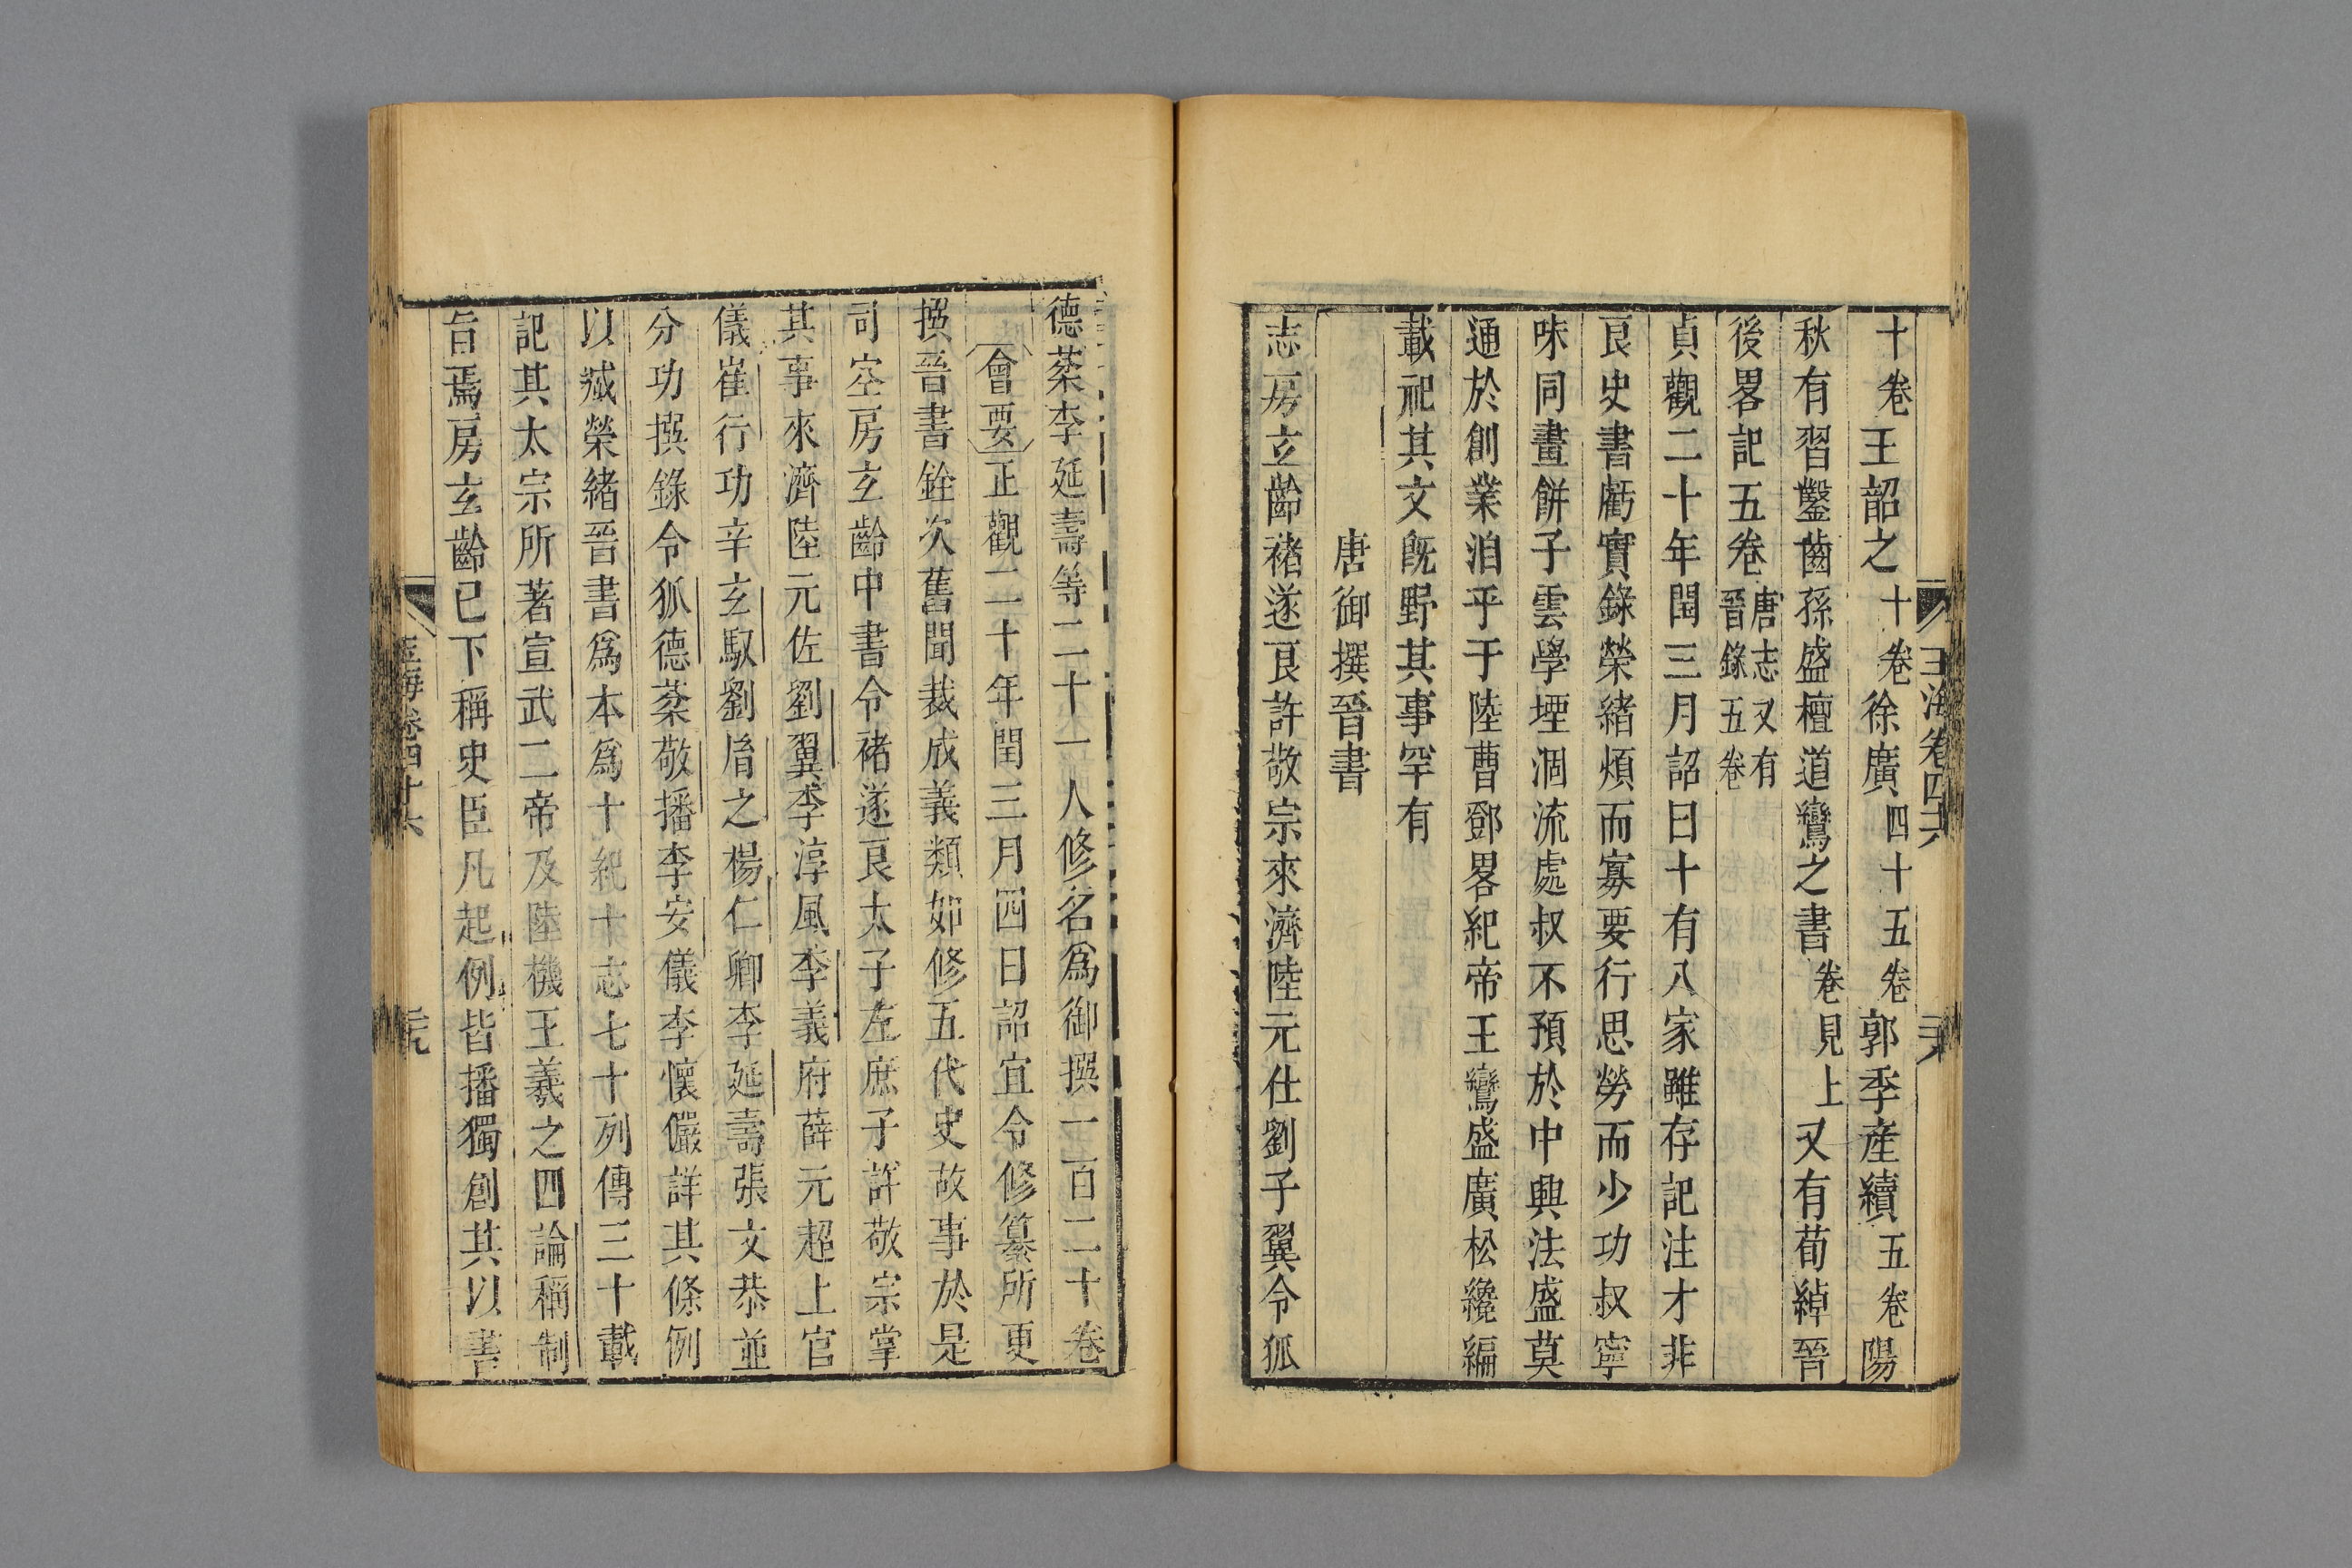 玉海卷四十六
十卷王韶之十卷徐廣四十五卷郭季產續五卷陽
秋有習鑿齒孫盛檀道鸞之書卷見上又有荀綽晉
後畧記五卷唐志又有晉錄五卷
貞觀二十年閏三月詔曰十有八家雖存記注才非
良史書虧實錄榮緒煩而寡要行思勞而少功叔寧
味同畫餅子雲學堙涸流處叔不預於中興法盛莫
通於創業洎乎干陸曹鄧畧紀帝王鸞盛廣松纔編
載祀其文旣野其事罕有
唐御撰晉書
志房玄齡褚遂良許敬宗來濟陸元仕劉子翼令狐
德棻李延壽等二十一人修名爲御撰一百二十卷
會要正觀二十年閏三月四日詔宜令修纂所更
撰晉書銓次舊聞裁成義類如修五代史故事於是
司空房玄齡中書令褚遂良太子左庶子許敬宗掌
其事來濟陸元佐劉翼李淳風李義府薛元超上官
儀崔行功辛玄馭劉胤之楊仁卿李延壽張文恭並
分功撰錄令狐德棻敬播李安儀李懷儼詳其條例
以臧榮緒晉書爲本爲十紀十志七十列傳三十載
記其太宗所著宣武二帝及陸機王羲之四論稱制
旨焉房玄齡已下稱史臣凡起例皆播獨創其以書
玉海卷四十六